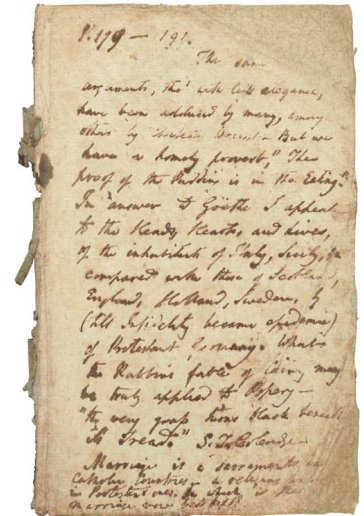 P. 179 — 191.
The same
arguments, tho' with less elegance,
have been adduced by many, among
others by But we
have a homely proverb, "The
proof of the Pudding is in the Eating."
In answer to Göethe I appeal
to the Heads, Hearts, and Lives,
of the inhabitants of Italy, Sicily, &c
compared with those of Scotland,
England, Holland, Sweden, &
(till Infidelity became epidemic)
of Protestant Germany. What
the Rabbins fabled of may
be truly applied to Popery —
"the very grass turns black beneath
its Tread." S. T. Coleridge
Marriage is a sacrament in
Catholic Countries — a religious
in Protestant ones. In which is the
marriage vow best kept?